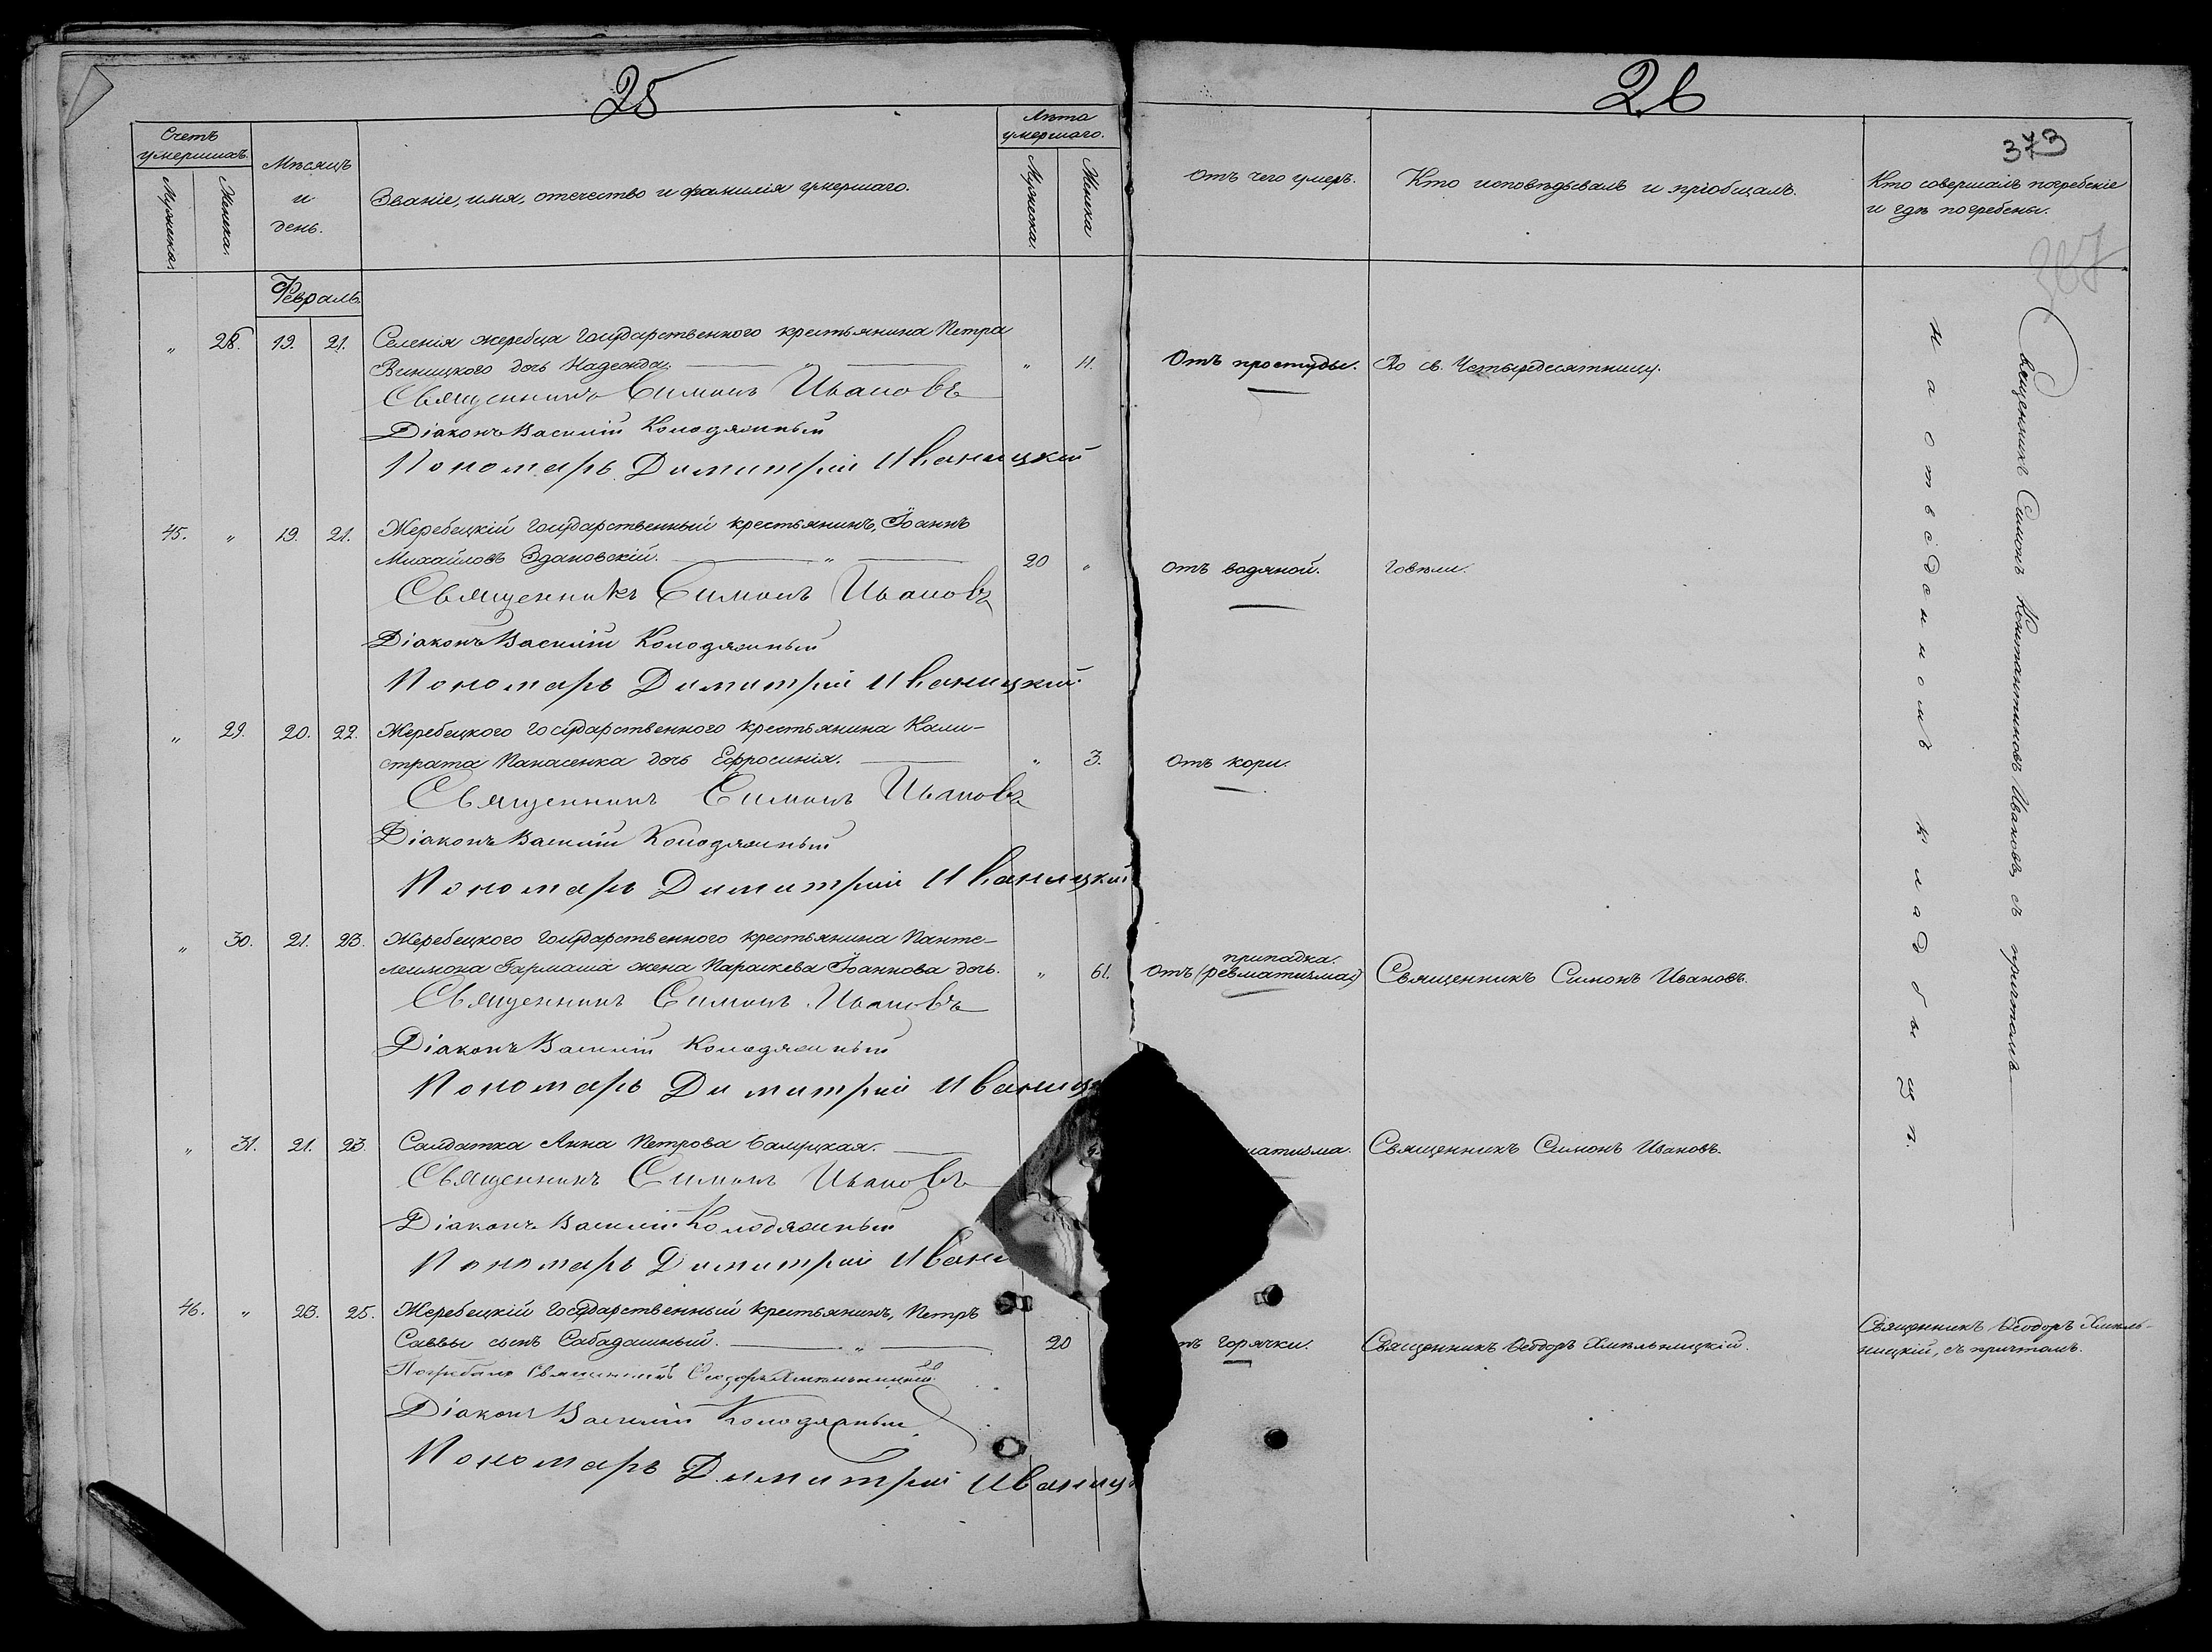 25
Счетъ умершихъ.
Мужеска.
Женска.
Мѣсяцъ и день.
Званіе, имя, отчество и фамилія умершаго.
Лѣта умершаго.
Мужеска.
Женска
Февраль.
" 28. 19. 21. Селенія жеребца Государственного крестьянина Петра
Виницкого дочь Надежда. " " 11.
Священникъ Симонъ Ивановъ
Діаконъ Василій Колодяжный
Пономарь Димитрій Иваницкій
45. " 19. 21. Жеребецкій Государственный крестьянинъ, Іоаннъ
Михайловъ Здановскій. " 20 "
Священникъ Симонъ Ивановъ
Діаконъ Василій Колодяжный
Пономарь Димитрій Иваницкій
" 29. 20. 22. Жеребецкого Государственного крестьянина Кали-
страта Панасенка дочь Ефросинія. " 3.
Священникъ Симонъ Ивановъ
Діаконъ Василій Колодяжный
Пономарь Димитрій Иваницкій
" 30. 21. 23. Жеребецкого Государственного крестьянина Панте-
леимона Гармаша жена Параскева Іоаннова дочь. " 61.
Священникъ Симонъ Ивановъ
Діаконъ Василій Колодяжный
Пономарь Димитрій Иваниц
" 31. 21. 23. Салдатка Анна Петрова
Священникъ Симонъ Ивановъ
Діаконъ Василій Колодяжный
Пономарь Димитрій Ивани
46. " 23. 25. Жеребецкій Государственный крестьянинъ, Петръ
Саввы сынъ Сабадашный. " 20
Погребалъ Священникъ Ѳеодоръ Хмѣльницкій
Діаконъ Василій Колодяжный
Пономарь Димитрій Иваниц
26
373
Отъ чего умеръ.
Кто исповѣдывалъ и пріобщалъ.
Кто совершалъ погребеніе
и гдѣ погребены.
Отъ простуды. До св. Четыредесятницу.
Отъ водяной. Говѣли.
Отъ кори.
припадка.
Отъ (ревматизма) Священникъ Симонъ Ивановъ.
матизма. Священникъ Симонъ Ивановъ.
тъ горячки. Священникъ Ѳеодоръ Хмѣльницкій.
Священникъ Ѳеодоръ Хмѣль-
ницкій, съ причтомъ.
Священникъ Симонъ Константиновъ Ивановъ, съ причтомъ
на отведенномъ кладбищѣ.